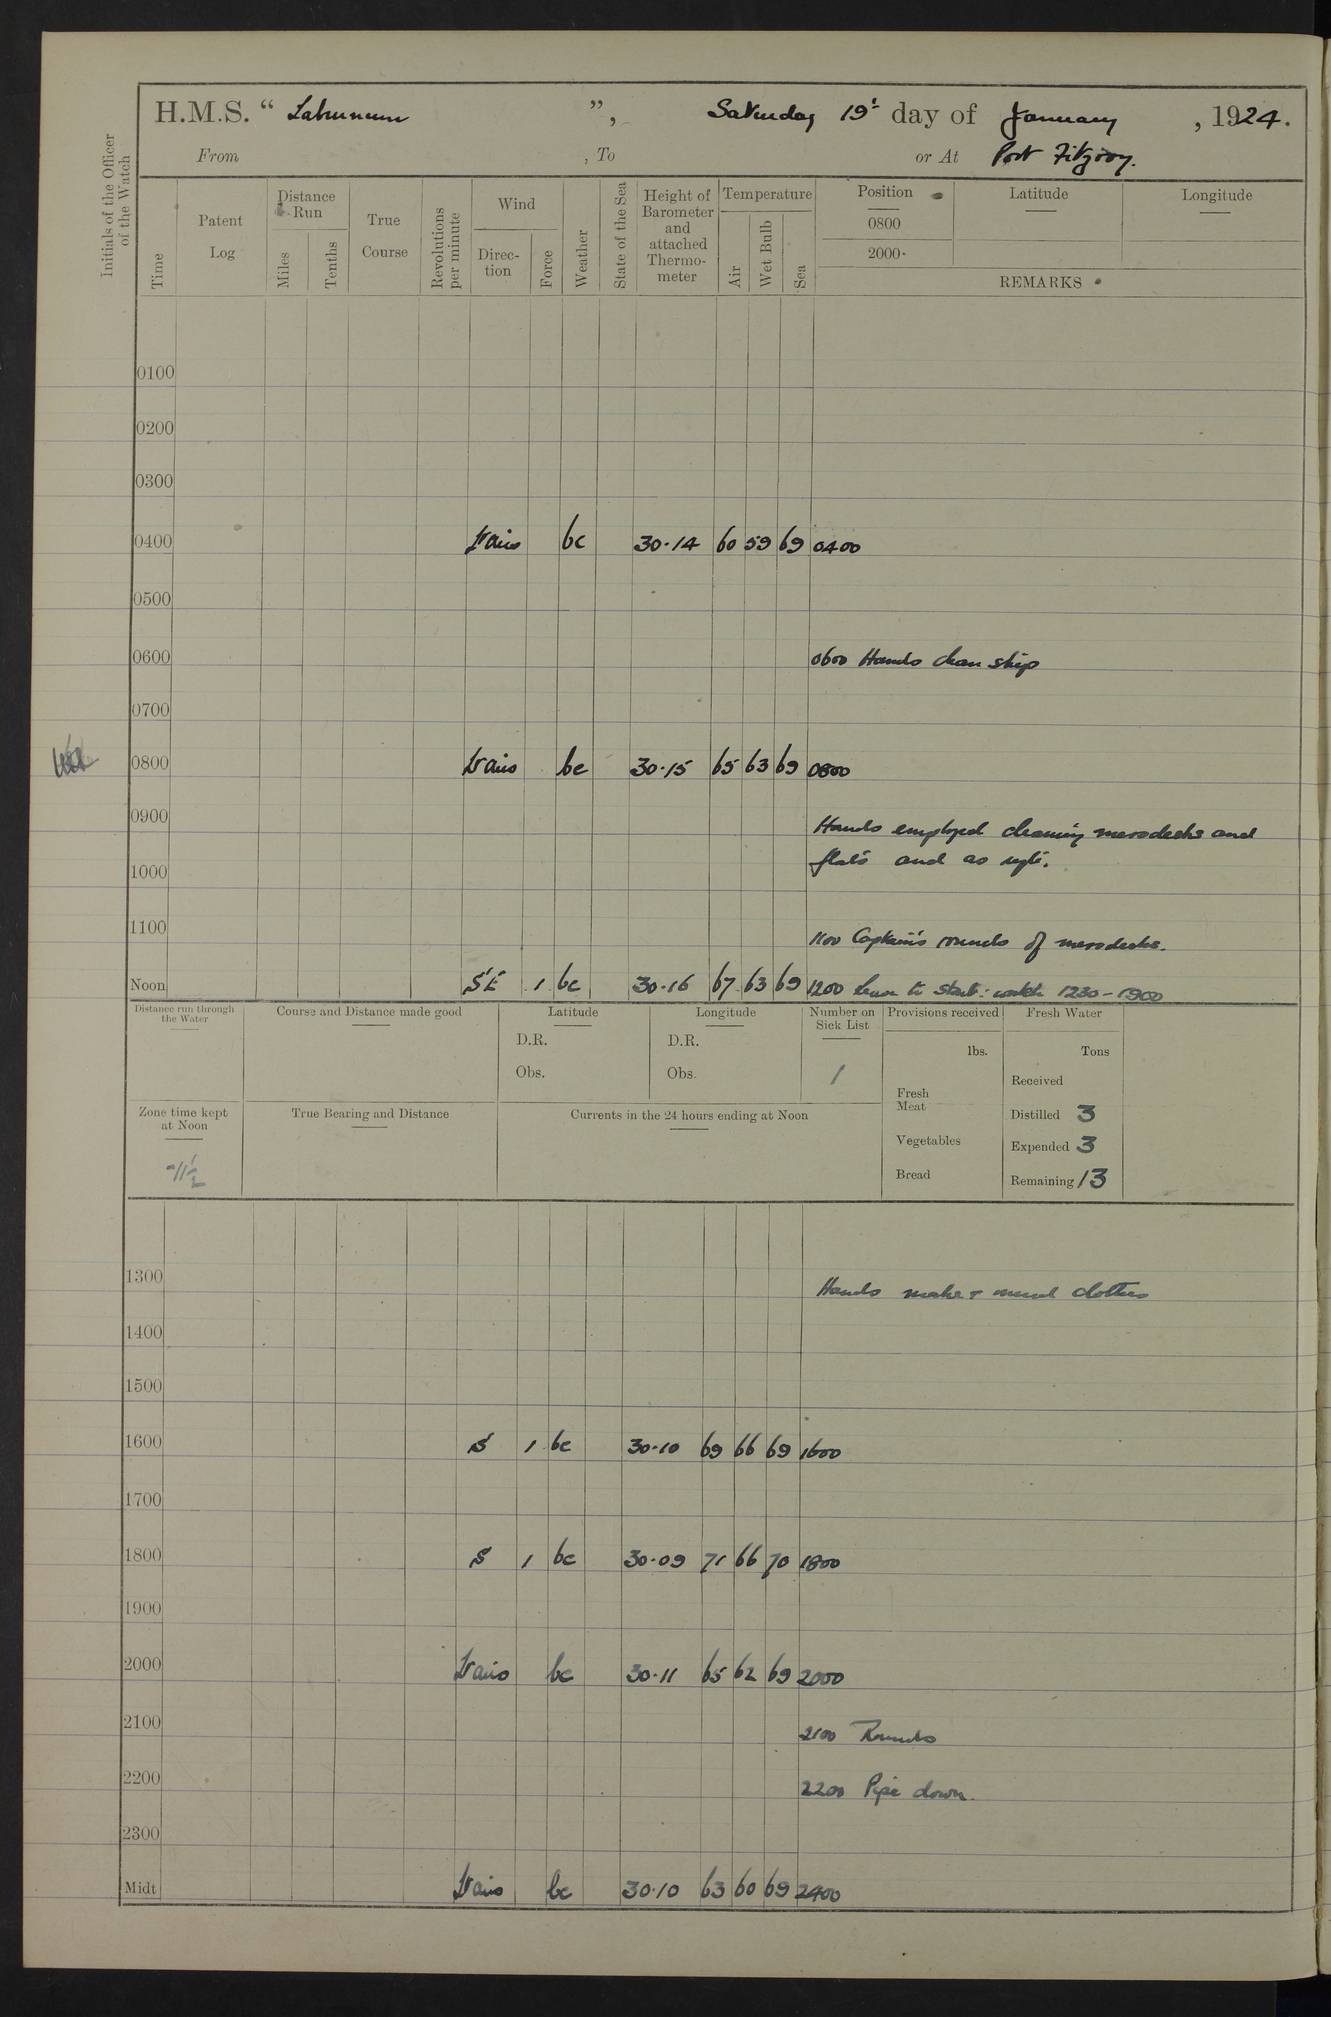 H.M.S. “ Laburnum ”, Saturday 19t day of January, 1924.
From , To or At Port Fitzroy.
Initials of the Officer of the Watch
Time
Patent Log
Distance Run
Miles
Tenths
True Course
Revolutions per minute
Wind
Direction
Force
Weather
State of the Sea
Height of Barometer and attached Thermometer
Temperature
Air
Wet Bulb
Sea
Position
0800
2000
Latitude
Longitude
REMARKS
0100
0200
0300
0400 Vairs bc 30·14 60 59 69 0400
0500
0600 0600 Hands clean ship
0700
0800 Vairs bc 30·15 65 63 69 0800
0900 Hands employed cleaning messdecks and
flats and as reqte.
1000
1100 1100 Captain's rounds of messdecks.
Noon SE 1 bc 30·16 67 63 69 1200 Leave to starb: watch 1230-1900
Distance run through the Water
Course and Distance made good
Latitude
D.R.
Obs.
Longitude
D.R.
Obs.
Number on Sick List
1
Provisions received
lbs.
Fresh Meat
Vegetables
Bread
Fresh Water
Tons
Received
Distilled 3
Expended 3
Remaining 13
Zone time kept at Noon
-11½
True Bearing and Distance
Currents in the 24 hours ending at Noon
1300 Hands make & mend clothes
1400
1500
1600 S 1 bc 30·10 69 66 69 1600
1700
1800 S 1 bc 30·09 71 66 70 1800
1900
2000 Vairs bc 30·11 65 62 69 2000
2100 2100 Rounds
2200 2200 Pipe down.
2300
Midt Vairs bc 30·10 63 60 69 2400